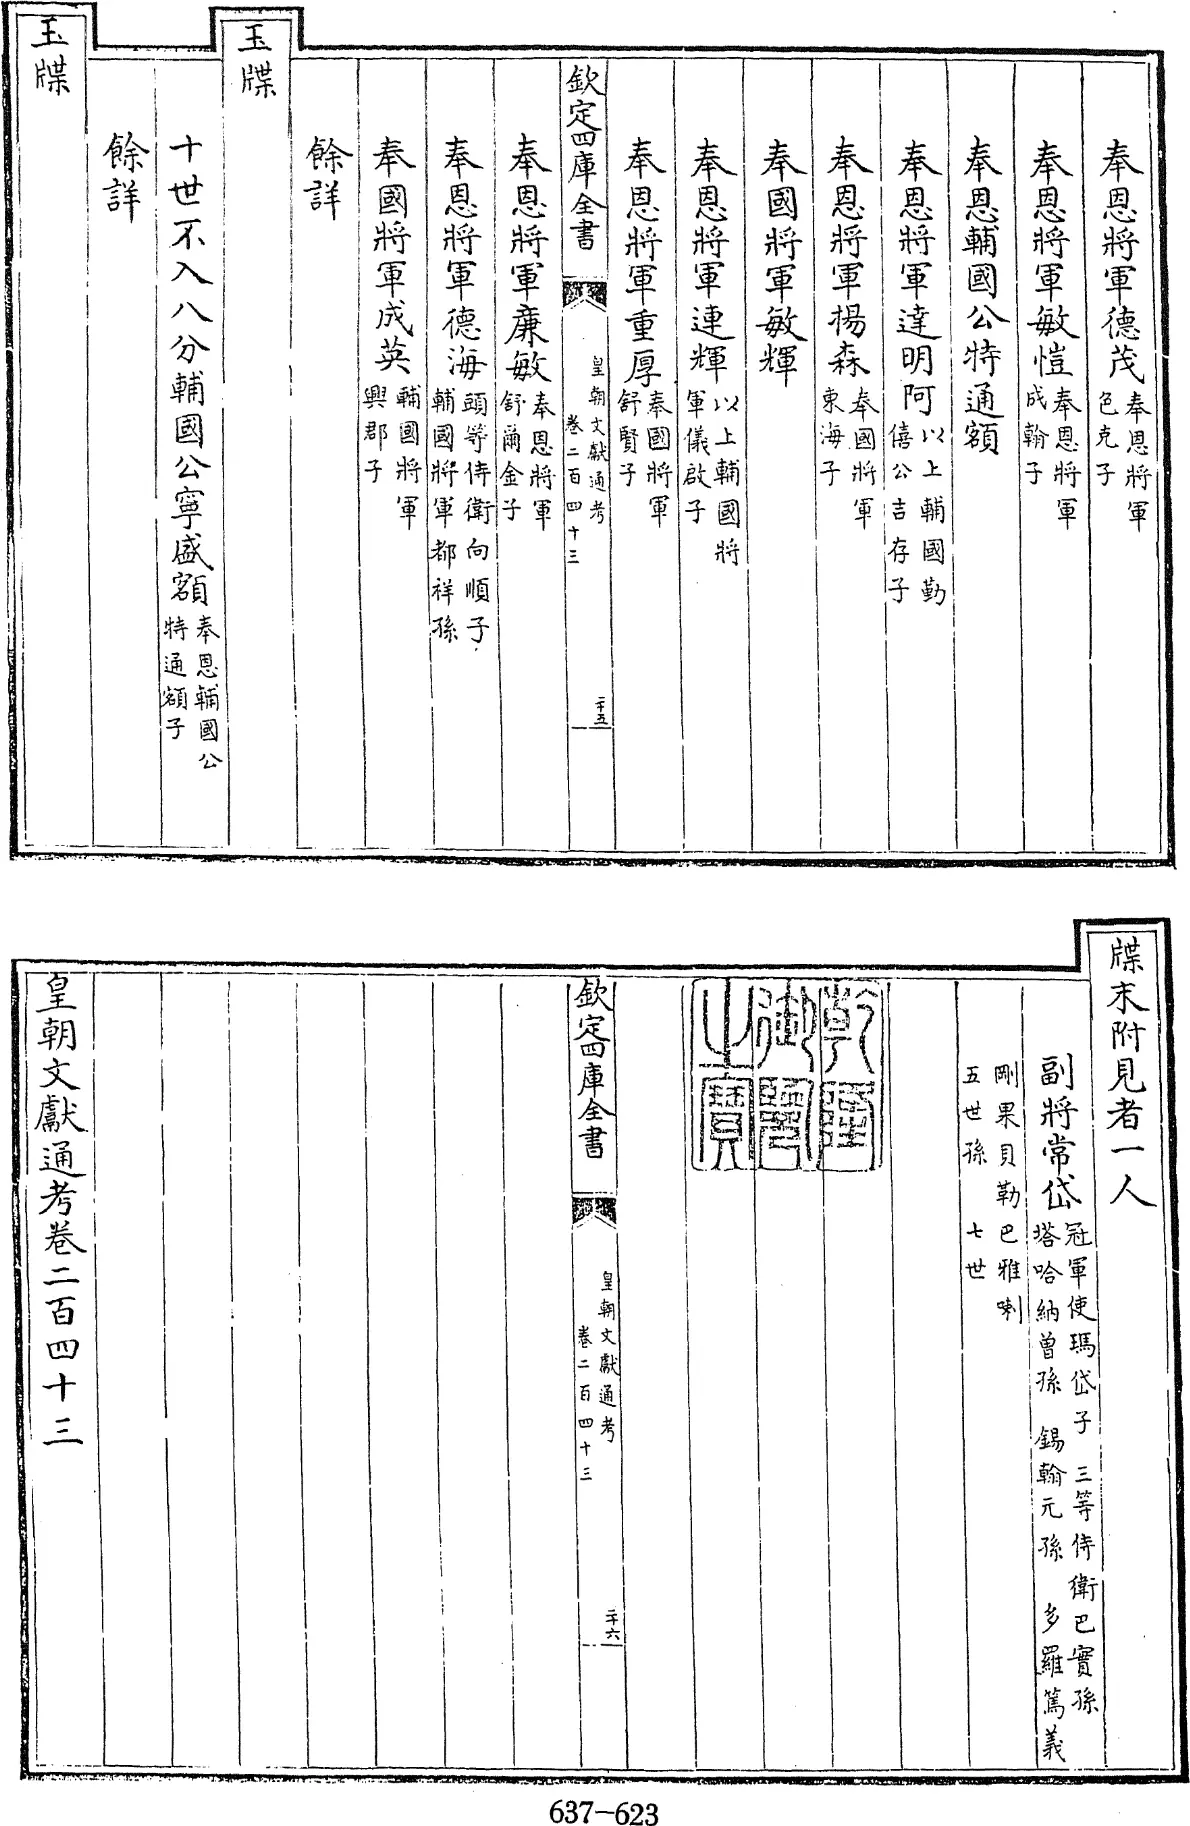 奉恩將軍德茂奉恩將軍色克子
奉恩將軍敏愷奉恩將軍成翰子
奉恩輔國公特通額
奉恩將軍達明阿以上輔國勤僖公吉存子
奉恩將軍楊森奉國將軍東海子
奉國將軍敏輝
奉恩將軍連輝以上輔國將軍儀啟子
奉恩將軍重厚奉國將軍舒賢子
欽定四庫全書
皇朝文獻通考
卷二百四十三
二十五
奉恩將軍廉敏奉恩將軍舒爾金子
奉恩將軍德海頭等侍衛向順子輔國將軍都祥孫
奉國將軍成英輔國將軍興郡子
餘詳
玉牒
十世不入八分輔國公寧盛額奉恩輔國公特通額子
餘詳
玉牒
牒末附見者一人
副將常岱冠軍使瑪岱子 三等侍衛巴實孫塔哈納曾孫 錫翰元孫 多羅篤義
剛果貝勒巴雅喇五世孫 七世
乾隆御覽之寶
欽定四庫全書
皇朝文獻通考
卷二百四十三
二十六
皇朝文獻通考卷二百四十三
637-623